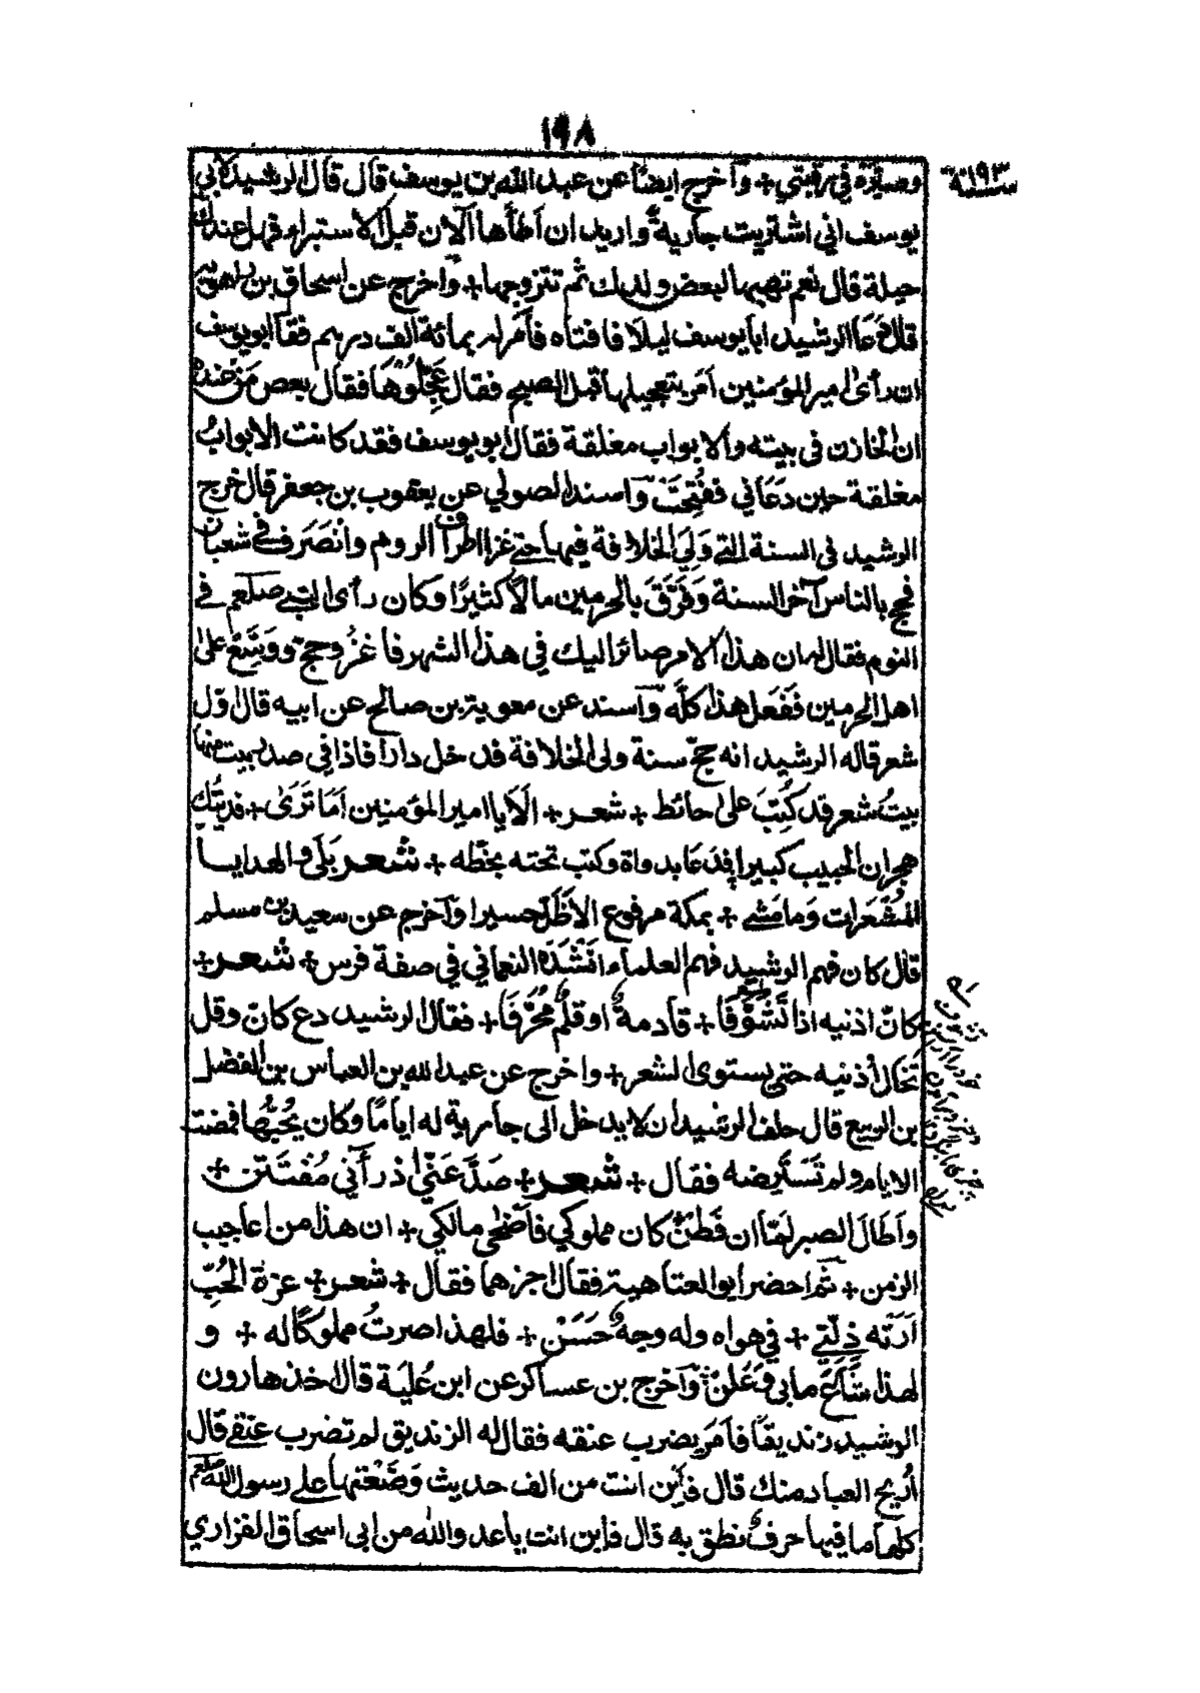 ١٩٨
سنة ١٩٣
وصيره في رقبتي + وآخرج ايضا عن عبد الله بن يوسف قال قال الرشيد لابي
يوسف اني اشتريت جاريةً واريد ان اَطأَها الآن قبل الاستبراء فهل عندك
حيلة قال نعم تهبها لبعض ولدك ثم تتزوجها + وآخرج عن اسحاق بن راهويه
قال دَعَا الرشيد ابا يوسف ليلا فافتاه فأمر له بمائة الف درهم فقال ابو يوسف
ان رأى امير المؤمنين اَمَر بتعجيلها قبل الصبح فقال عَجِّلُوْهَا فقال بعض مَنْ عنده
ان الخازن في بيته والابواب مغلقة فقال ابو يوسف فقد كانت الابوابُ
مغلقة حين دَعَاني ففُتِحَتْ وآسند الصولي عن يعقوب بن جعفر قال خرج
الرشيد في السنة التي وَلِيَ الخلافة فيها حتى غزا اطراف الروم وانْصَرَفَ في شعبان
فحج بالناس آخر السنة وَفَرَّقَ بالحرمين مالًا كثيرًا وكان رأى النبي صلعم في
النوم فقال له ان هذا الامر صائر اليك في هذا الشهر فاغزُ وحجّ ووَسِّعْ على
اهل الحرمين فَفَعل هذا كلَّه وآسند عن معوية بن صالح عن ابيه قال اوّل
شعر قاله الرشيد انه حجّ سنة ولى الخلافة فدخل دارا فاذا في صدر بيت منها
بيتُ شعر قد كُتِبَ على حائط + شعر + الَا يا امير المؤمنين اَمَا تَرَى + فديتُك
هجران الحبيب كبيرا فدَعَا بدواة وكتب تحته بخطّه + شعر بَلَى والهدايا
المُشْعَرات وَمَا مَشَى + بمكة مرفوع الاَظَلّ حسيرا وآخرج عن سعيد بن مسلم
قال كان فهم الرشيد فهم العلماء اَنْشَدَهُ النعماني في صفة فرس + شعر +
كانّ اذنيه اذا تَشَوَّفَا + قادمةً او قلمٌ مُحَرَّفَا + فقال الرشيد دع كانّ وقل
تَخَال أذنيه حتى يستوى الشعر + واخرج عن عبد الله بن العباس بن الفضل
بن الربيع قال حلف الرشيد ان لا يدخل الى جارية له ايامًا وكان يُحِبُّها فمضت
الايام ولم تَسْتَرضِه فقال + شعر + صَدَّ عَنِّى اذ رآني مُفْتَتَن +
واَطَالَ الصبر لمّا ان فَطَنْ كان مملوكي فاَضْحَى مالكي + ان هذا من اعاجيب
الزمن + ثم احضر ابو العتاهية فقال اجزهما فقال + شعر + عزة الحُبّ
اَرَتْه ذِلّتي + في هواه وله وجهٌ حَسَنْ + فلهذا صرتُ مملوكًا له + و
لهذا شَاعَ ما بي وعَلَنْ وآخرج بن عساكر عن ابن عُلَيَة قال اخذ هارون
الرشيد زنديقاً فاَمَر بضرب عنقه فقال له الزنديق لم تضرب عنقى قال
اُريح العباد منك قال فاَين انت من الف حديث وَضَعْتها على رسول الله صلعم
كلّها ما فيها حرفٌ نطق به قال فاين انت يا عدو الله من ابى اسحاق الفزاري